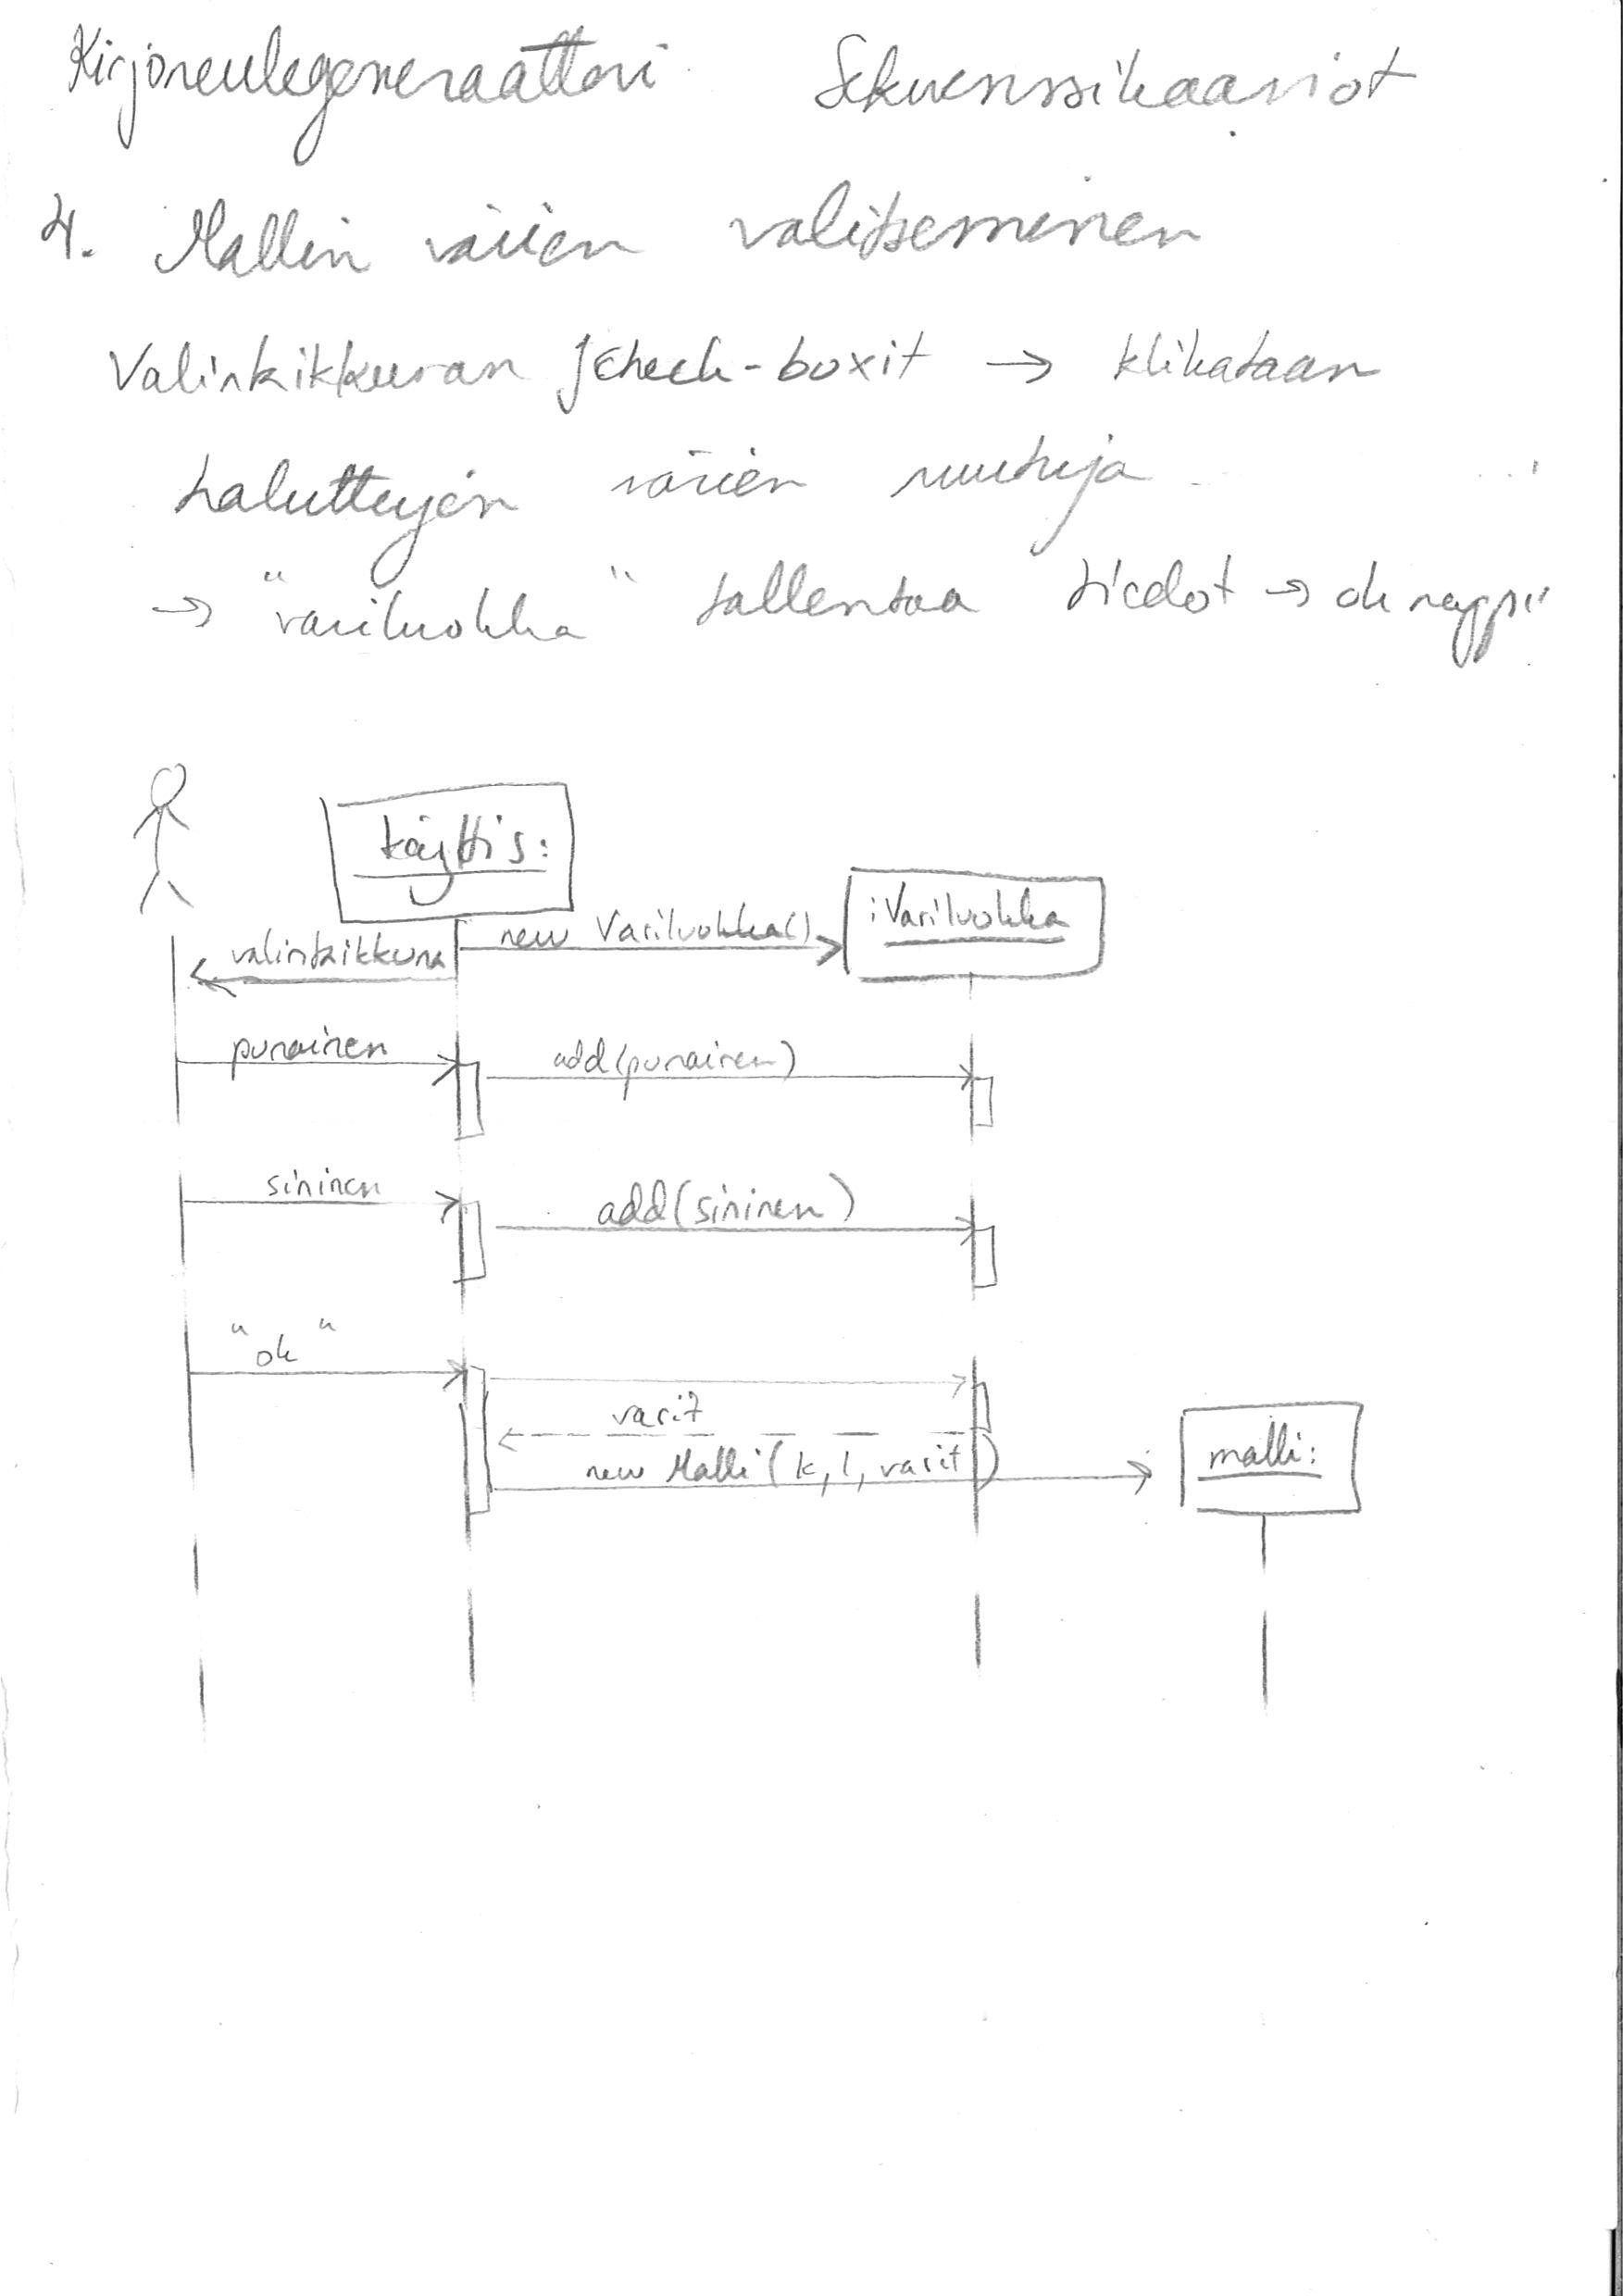 Kirjoneulegeneraattori Sekvenssikaaviot
4. Mallin värien valitseminen
Valintaikkunan Jcheck-boxit → klikataan
haluttujen värien ruutuja
→ "variluokka" tallentaa tiedot → ok nappi
käyttis:
:Variluokka
new Variluokka()
valintaikkuna
punainen add(punainen)
sininen add(sininen)
"ok"
varit
new Malli(k, l, varit)
malli: